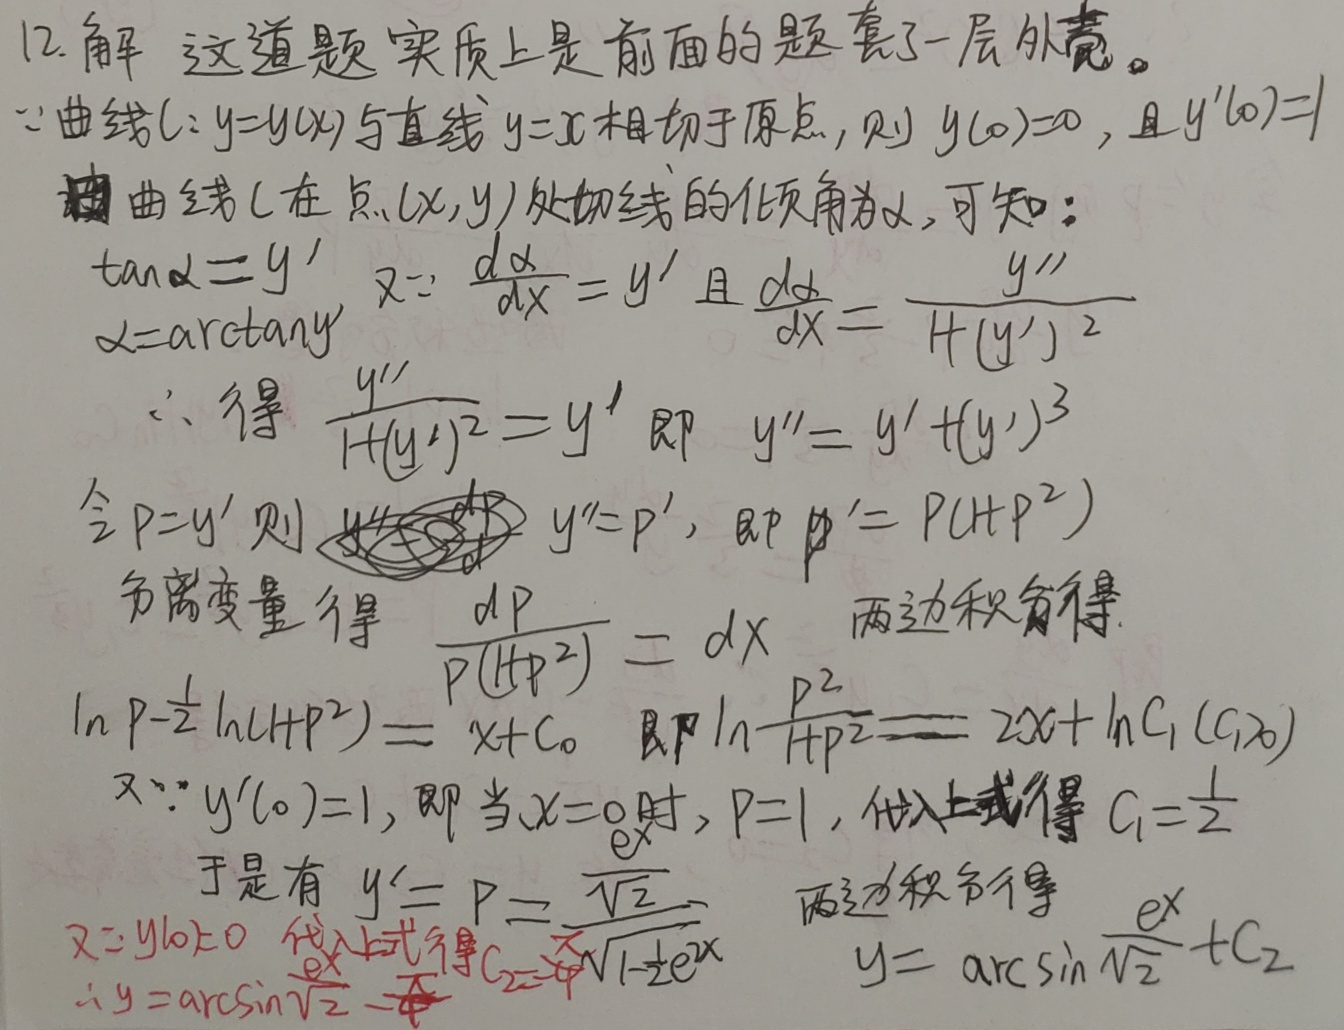 12. 解 这道题实质上是前面的题套了一层外壳。
∵曲线C: y=y(x)与直线 y=x相切于原点, 则 y(0)=0, 且y'(0)=1
曲线C在点(x,y)处切线的倾角为α, 可知:
tanα=y' 又∵ dα/dx = y' 且 dα/dx = y''/(1+(y')²)
α=arctany'
∴得 y''/(1+(y')²) = y' 即 y''= y'+(y')³
令P=y' 则 y''=p', 即 p'= P(1+P²)
分离变量得 dP/(P(1+P²)) = dx 两边积分得
ln P-½ ln(1+P²) = x+C₀ 即 ln P²/(1+P²) = 2x+lnC₁ (C₁>0)
又∵ y'(0)=1, 即当x=0时, P=1, 代入上式得 C₁=1/2
于是有 y'=P= (eˣ/√2)/√(1-½e²ˣ) 两边积分得
y= arcsin eˣ/√2 +C₂
又∵y(0)=0 代入上式得C₂=-π/4
∴y=arcsin eˣ/√2 - π/4